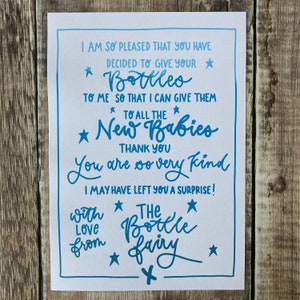 I AM SO PLEASED THAT YOU HAVE
DECIDED TO GIVE YOUR
Bottles
TO ME SO THAT I CAN GIVE THEM
TO ALL THE
New Babies
THANK YOU
You are so very kind
I MAY HAVE LEFT YOU A SURPRISE!
with
love
from
THE
Bottle
fairy
X